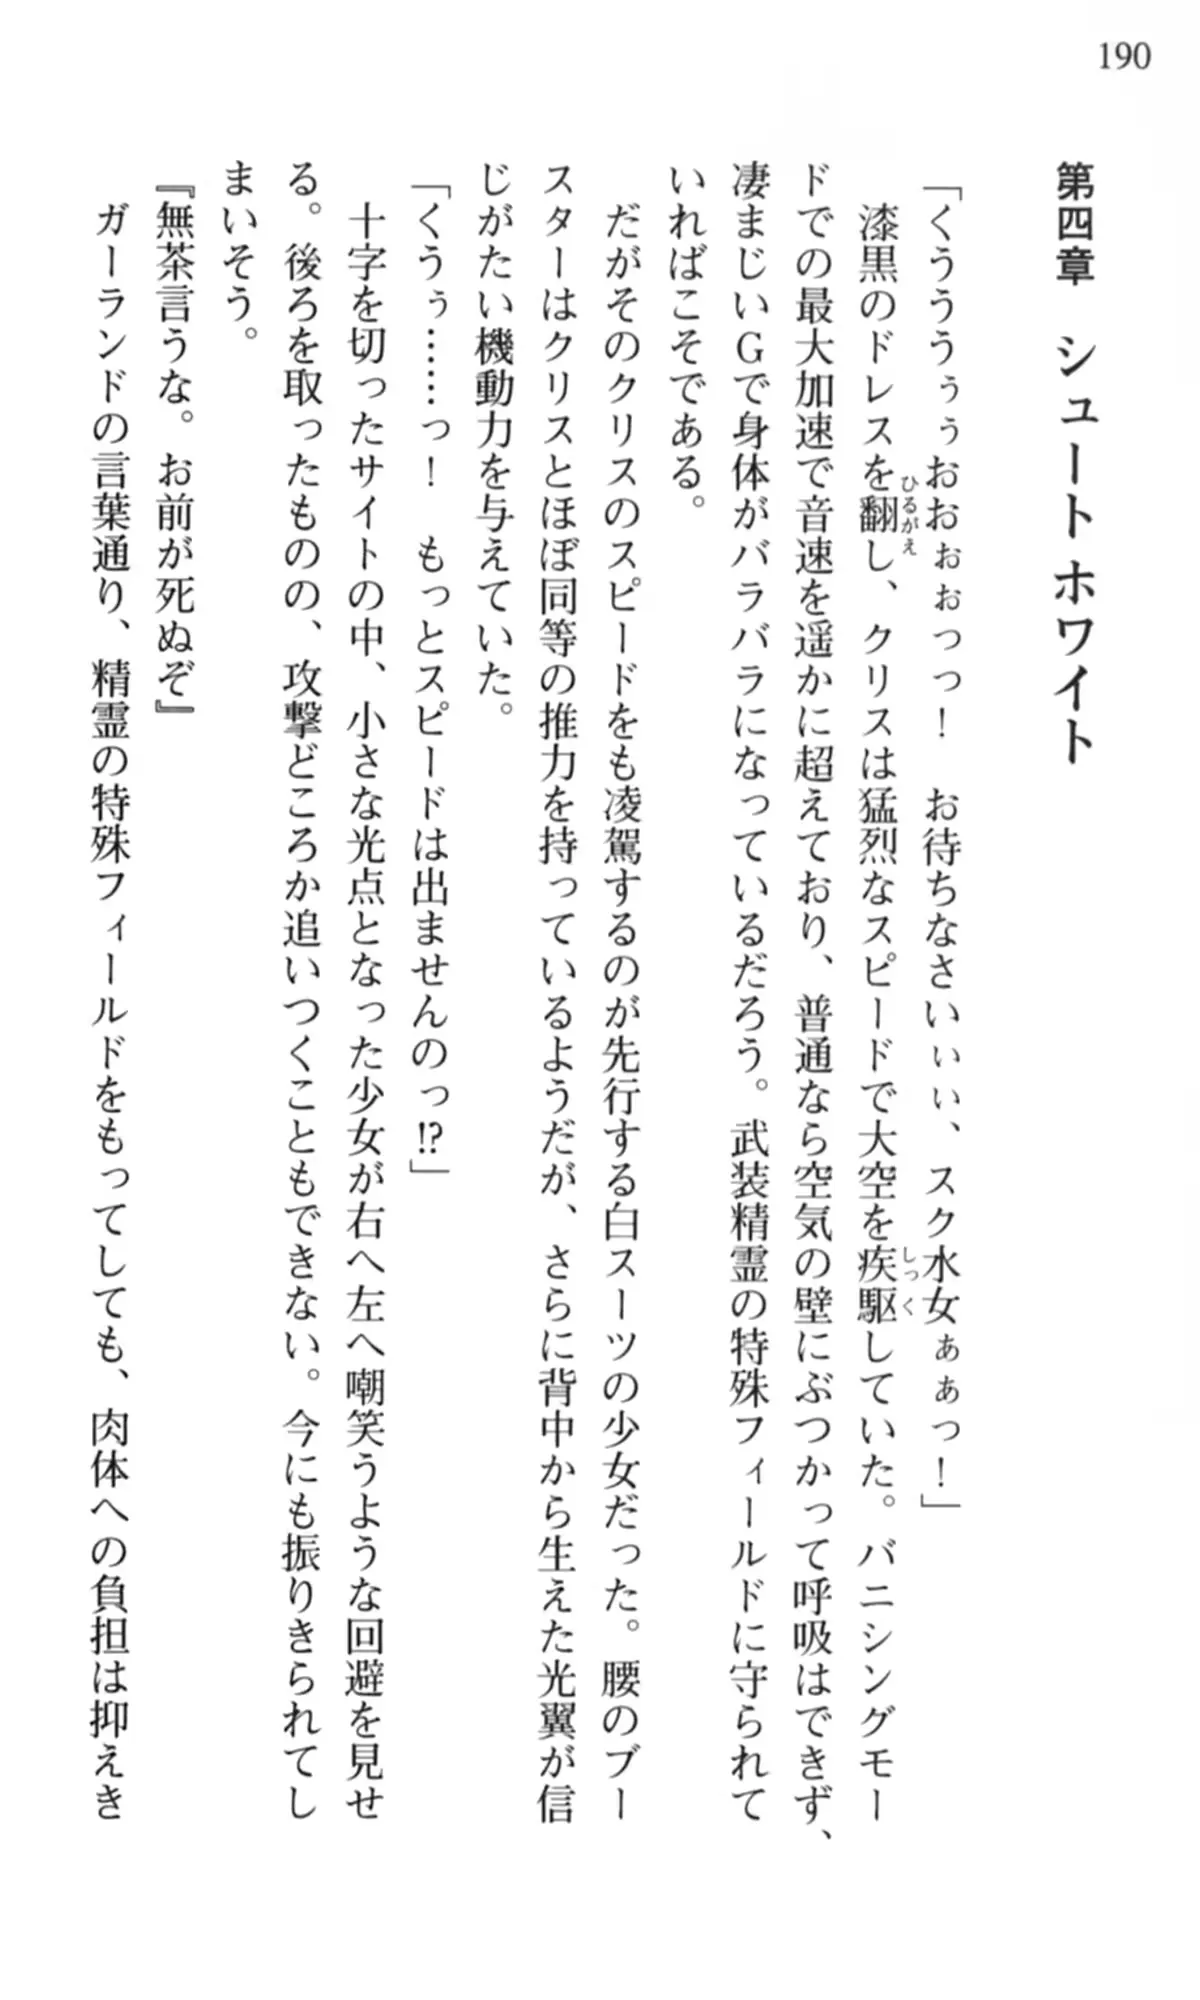 190
第四章　シュートホワイト
「くううぅぅおおぉぉっっ！　お待ちなさいぃぃ、スク水女ぁぁっ！」
漆黒のドレスを翻し、クリスは猛烈なスピードで大空を疾駆していた。バニシングモー
ドでの最大加速で音速を遥かに超えており、普通なら空気の壁にぶつかって呼吸はできず、
凄まじいＧで身体がバラバラになっているだろう。武装精霊の特殊フィールドに守られて
いればこそである。
だがそのクリスのスピードをも凌駕するのが先行する白スーツの少女だった。腰のブー
スターはクリスとほぼ同等の推力を持っているようだが、さらに背中から生えた光翼が信
じがたい機動力を与えていた。
「くうぅ……っ！　もっとスピードは出ませんのっ⁉」
十字を切ったサイトの中、小さな光点となった少女が右へ左へ嘲笑うような回避を見せ
る。後ろを取ったものの、攻撃どころか追いつくこともできない。今にも振りきられてし
まいそう。
『無茶言うな。お前が死ぬぞ』
ガーランドの言葉通り、精霊の特殊フィールドをもってしても、肉体への負担は抑えき
ひるがえ
しっく